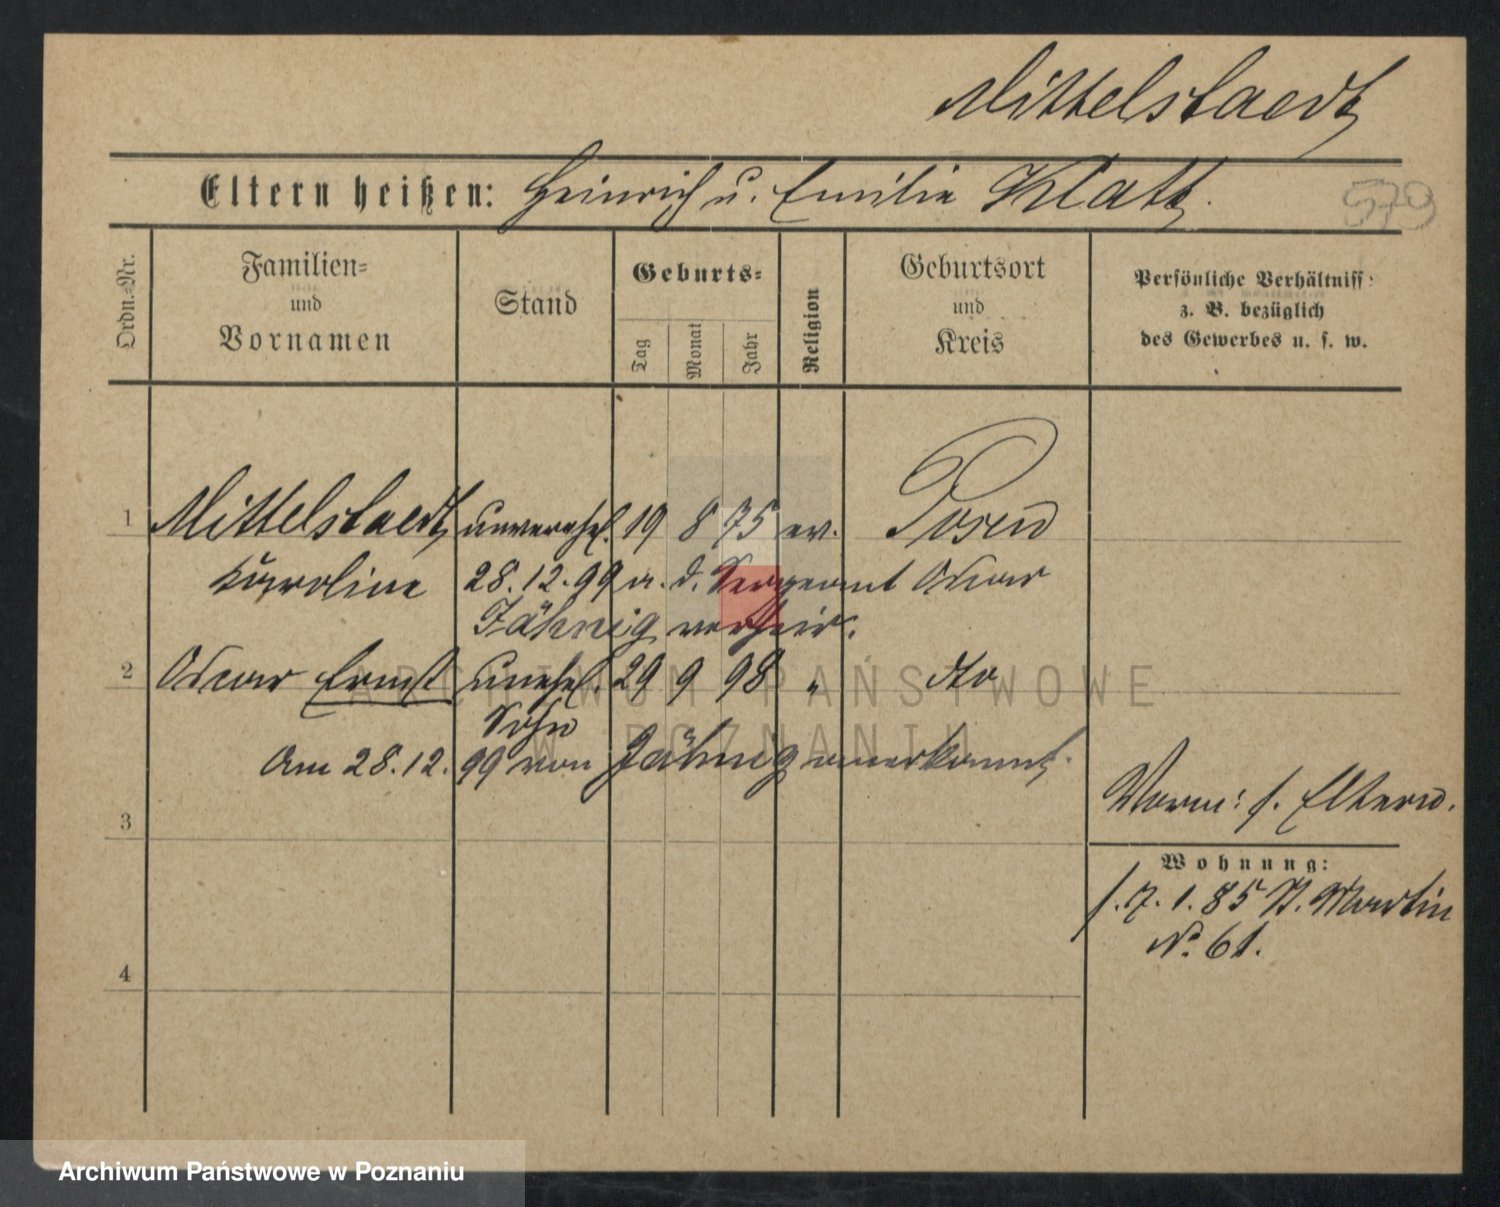 Mittelstaedt
Eltern heißen: Heinrich u. Emilie Klatt.
579
Ordn.-Nr.
Familien- und Vornamen
Stand
Geburts-
Tag
Monat
Jahr
Religion
Geburtsort und Kreis
Persönliche Verhältniss: z. B. bezüglich des Gewerbes u. s. w.
1 Mittelstaedt, unverehel. 19 8 75 ev. Posen
Karoline 28.12.99 m. d. Sergeant Oscar
Jähnig verheir.
2 Oscar Ernst unehel. 29 9 98 " dto
Sohn
Am 28.12.99 von Jähnig anerkannt.
3
Vorm: s. Eltern.
Wohnung:
s. 7.1.85 St. Martin
No. 61.
4
ARCHIWUM PAŃSTWOWE
W POZNANIU
Archiwum Państwowe w Poznaniu